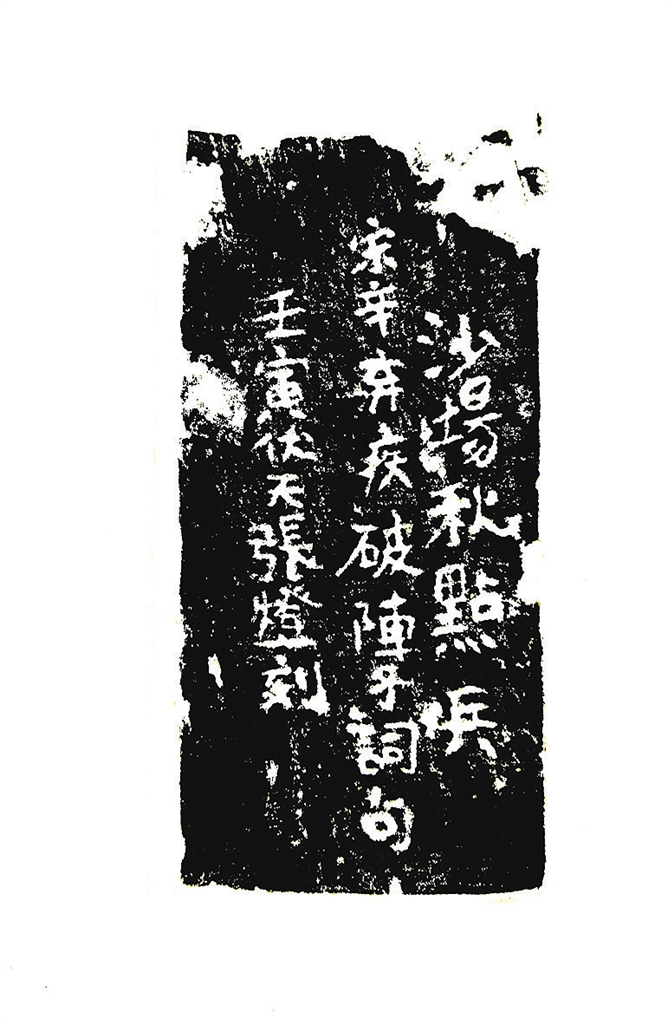 沙場秋點兵
宋辛弃疾破陣子詞句
壬寅伏天張燈刻